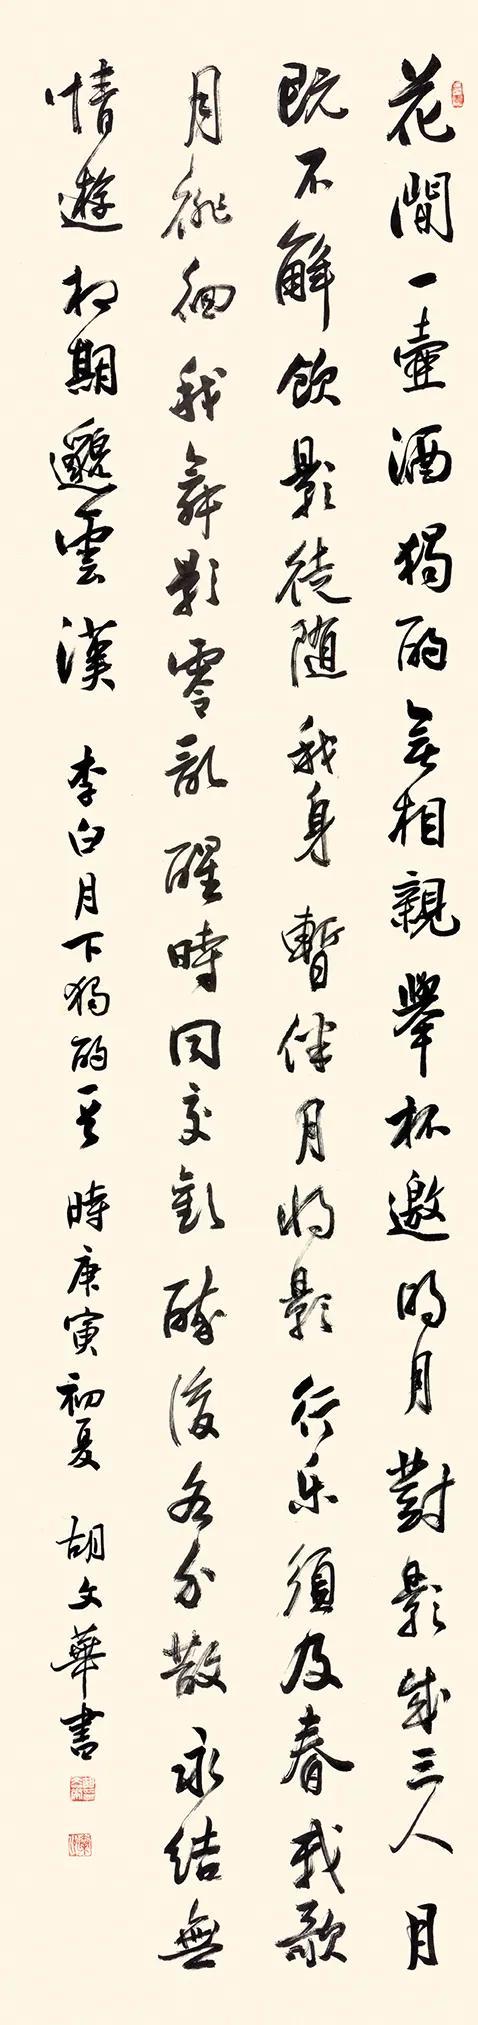 花間一壺酒獨酌無相親舉杯邀明月對影成三人月
既不解飲影徒随我身暫伴月將影行樂須及春我歌
月徘徊我舞影零亂醒時同交歡醉後各分散永結無
情遊相期邈雲漢 李白月下獨酌一首 時庚寅初夏 胡文華書